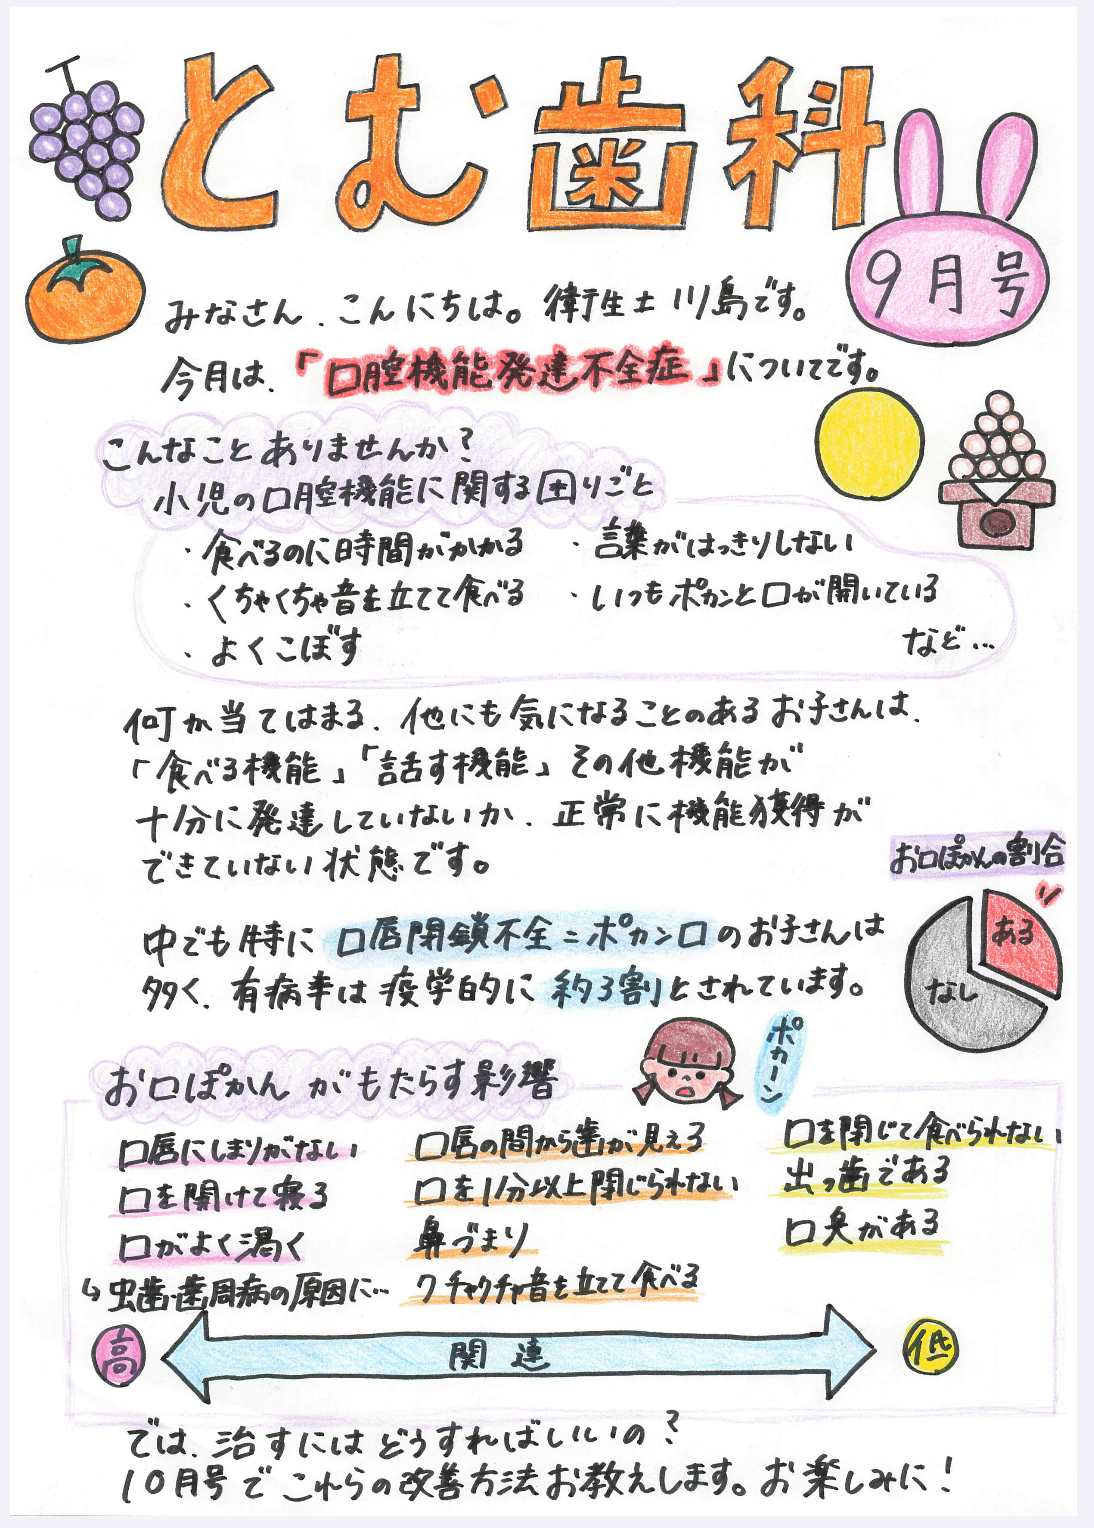 とむ歯科
9月号
みなさん、こんにちは。衛生士川島です。
今月は、「口腔機能発達不全症」についてです。
こんなことありませんか?
小児の口腔機能に関する困りごと
・食べるのに時間がかかる
・言葉がはっきりしない
・くちゃくちゃ音を立てて食べる
・いつもポカンと口が開いている
・よくこぼす
など…
何か当てはまる、他にも気になることのあるお子さんは、
「食べる機能」「話す機能」その他機能が
十分に発達していないか、正常に機能獲得が
できていない状態です。
お口ぽかんの割合
ある
なし
中でも特に口唇閉鎖不全=ポカン口のお子さんは
多く、有病率は疫学的に約3割とされています。
お口ぽかんがもたらす影響
ポカーン
口唇にしまりがない
口を開けて寝る
口がよく渇く
↳虫歯・歯周病の原因に…
口唇の間から歯が見える
口を1分以上閉じられない
鼻づまり
クチャクチャ音を立てて食べる
口を閉じて食べられない
出っ歯である
口臭がある
高
関連
低
では、治すにはどうすればいいの?
10月号でこれらの改善方法お教えします。お楽しみに!